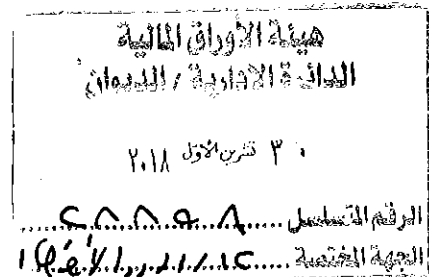 هيئة الأوراق المالية
الدائرة الادارية / الديوان
٣٠ تشرين الأول ٢٠١٨
الرقم المتسلسل
الجهة المختصة